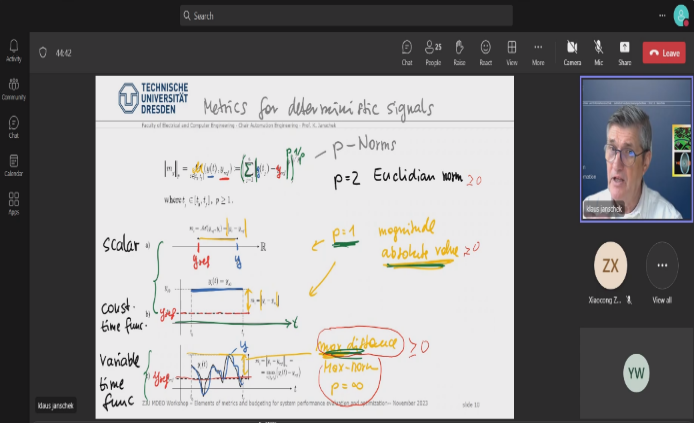 Search
44:42
Chat
25
People
Raise
React
View
More
Camera
Mic
Share
Leave
Activity
Community
Chat
Calendar
Apps
TECHNISCHE
UNIVERSITÄT
DRESDEN
Metrics for deterministic signals
Faculty of Electrical and Computer Engineering - Chair Automation Engineering - Prof. K. Janschek
p-Norms
p=2 Euclidian norm ≥0
p ≥ 1.
scalar
a)
ℝ
yref
y
p=1
magnitude
absolute value ≥0
const.
time func.
b)
yref
t
variable
time
func
yref
y
t
max distance ≥0
Max-norm
p=∞
Workshop – Elements of metrics and budgeting for system performance evaluation and optimization – November 2023
slide 10
klaus janschek
klaus janschek
ZX
Xiaocong Z...
View all
YW